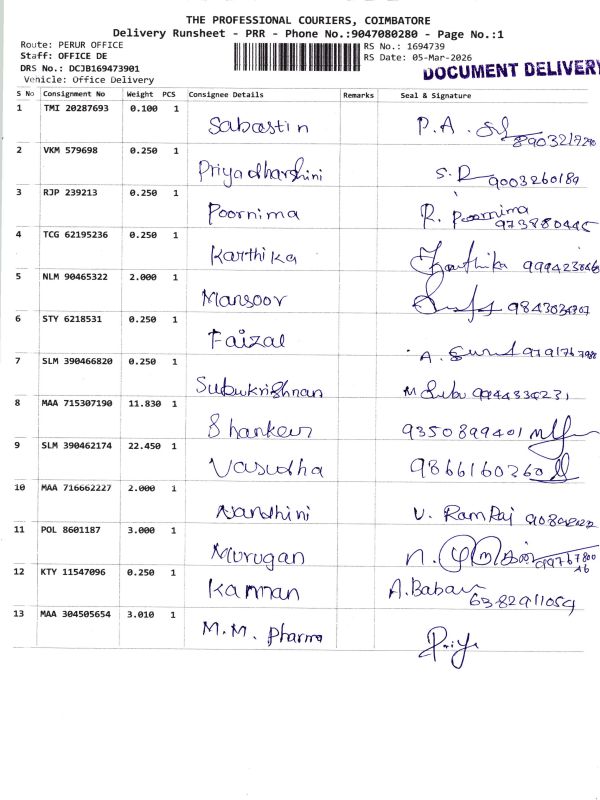 THE PROFESSIONAL COURIERS, COIMBATORE
Delivery Runsheet - PRR - Phone No.:9047080280 - Page No.:1
Route: PERUR OFFICE
Staff: OFFICE DE
DRS No.: DCJB169473901
Vehicle: Office Delivery
RS No.: 1694739
RS Date: 05-Mar-2026
DOCUMENT DELIVERY
S No Consignment No Weight PCS Consignee Details Remarks Seal & Signature
1 TMI 20287693 0.100 1 Sabastin P.A.
2 VKM 579698 0.250 1 Priyadharshini S.D 9003260189
3 RJP 239213 0.250 1 Poornima R. Poornima
4 TCG 62195236 0.250 1 Karthika Karthika
5 NLM 90465322 2.000 1 Mansoor
6 STY 6218531 0.250 1 Faizal A.
7 SLM 390466820 0.250 1 Subukrishnan M Subu
8 MAA 715307190 11.830 1 Shankar 9350899401
9 SLM 390462174 22.450 1 Vasudha 9866160260
10 MAA 716662227 2.000 1 Nandhini V. RamRaj
11 POL 8601187 3.000 1 Murugan n. முருகன்
12 KTY 11547096 0.250 1 Kannan A. Babau 6382911059
13 MAA 304505654 3.010 1 M.M. Pharma Priya